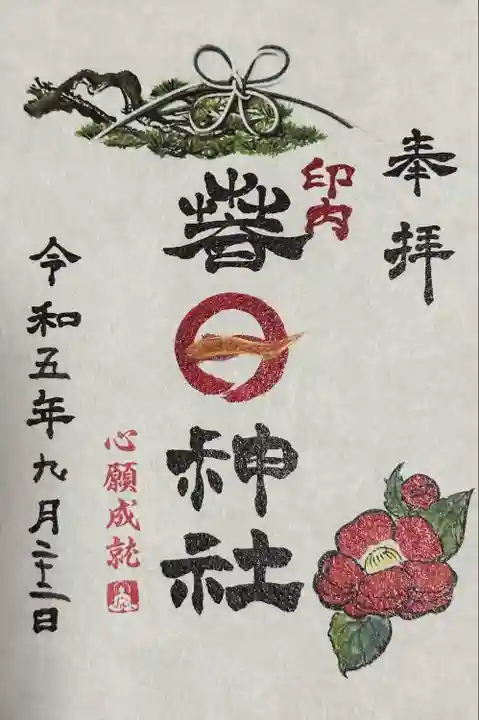 奉拝
印内
春日神社
心願成就
令和五年九月二十二日